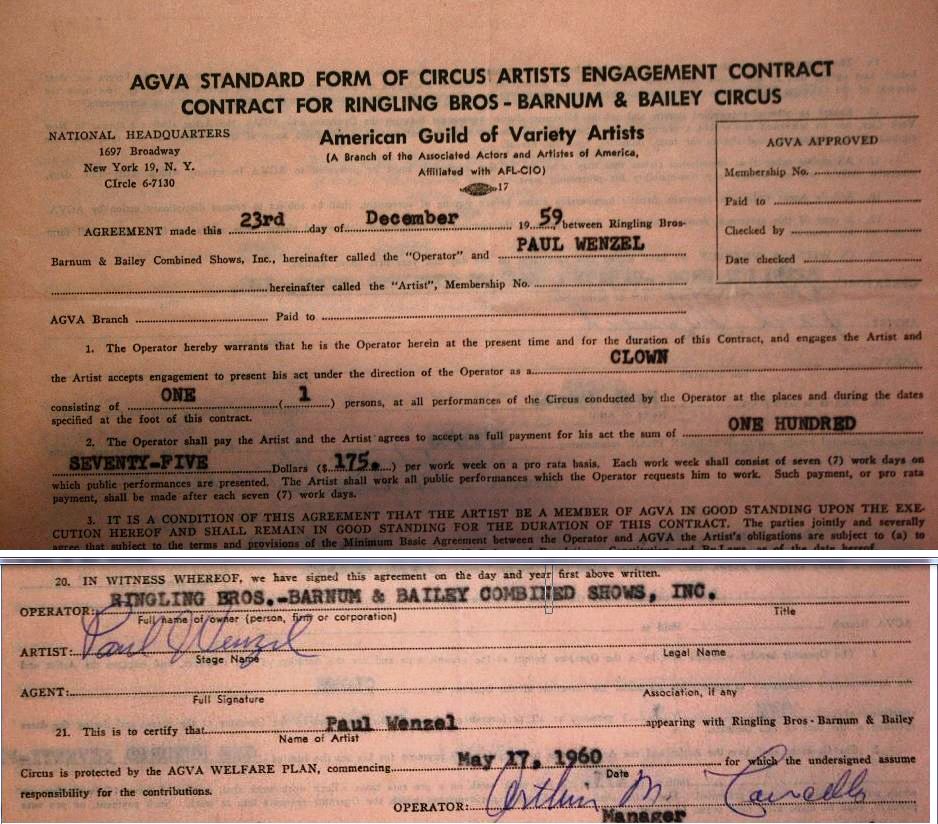 AGVA STANDARD FORM OF CIRCUS ARTISTS ENGAGEMENT CONTRACT
CONTRACT FOR RINGLING BROS - BARNUM & BAILEY CIRCUS
NATIONAL HEADQUARTERS
1697 Broadway
New York 19, N. Y.
CIrcle 6-7130
American Guild of Variety Artists
(A Branch of the Associated Actors and Artistes of America,
Affiliated with AFL-CIO)
17
AGVA APPROVED
Membership No.
Paid to
Checked by
Date checked
AGREEMENT made this 23rd day of December 19 59, between Ringling Bros-
Barnum & Bailey Combined Shows, Inc., hereinafter called the "Operator" and PAUL WENZEL
hereinafter called the "Artist", Membership No.
AGVA Branch Paid to
1. The Operator hereby warrants that he is the Operator herein at the present time and for the duration of this Contract, and engages the Artist and
the Artist accepts engagement to present his act under the direction of the Operator as a CLOWN
consisting of ONE ( 1 ) persons, at all performances of the Circus conducted by the Operator at the places and during the dates
specified at the foot of this contract.
2. The Operator shall pay the Artist and the Artist agrees to accept as full payment for his act the sum of ONE HUNDRED
SEVENTY-FIVE Dollars ($ 175. ) per work week on a pro rata basis. Each work week shall consist of seven (7) work days on
which public performances are presented. The Artist shall work all public performances which the Operator requests him to work. Such payment, or pro rata
payment, shall be made after each seven (7) work days.
3. IT IS A CONDITION OF THIS AGREEMENT THAT THE ARTIST BE A MEMBER OF AGVA IN GOOD STANDING UPON THE EXE-
CUTION HEREOF AND SHALL REMAIN IN GOOD STANDING FOR THE DURATION OF THIS CONTRACT. The parties jointly and severally
agree that subject to the terms and provisions of the Minimum Basic Agreement between the Operator and AGVA the Artist's obligations are subject to (a) to
20. IN WITNESS WHEREOF, we have signed this agreement on the day and year first above written.
OPERATOR: RINGLING BROS.-BARNUM & BAILEY COMBINED SHOWS, INC.
Full name of owner (person, firm or corporation) Title
ARTIST: Paul Wenzel
Stage Name Legal Name
AGENT:
Full Signature Association, if any
21. This is to certify that Paul Wenzel appearing with Ringling Bros - Barnum & Bailey
Name of Artist
Circus is protected by the AGVA WELFARE PLAN, commencing May 17, 1960 for which the undersigned assume
Date
responsibility for the contributions.
OPERATOR: Arthur M. Concello
Manager